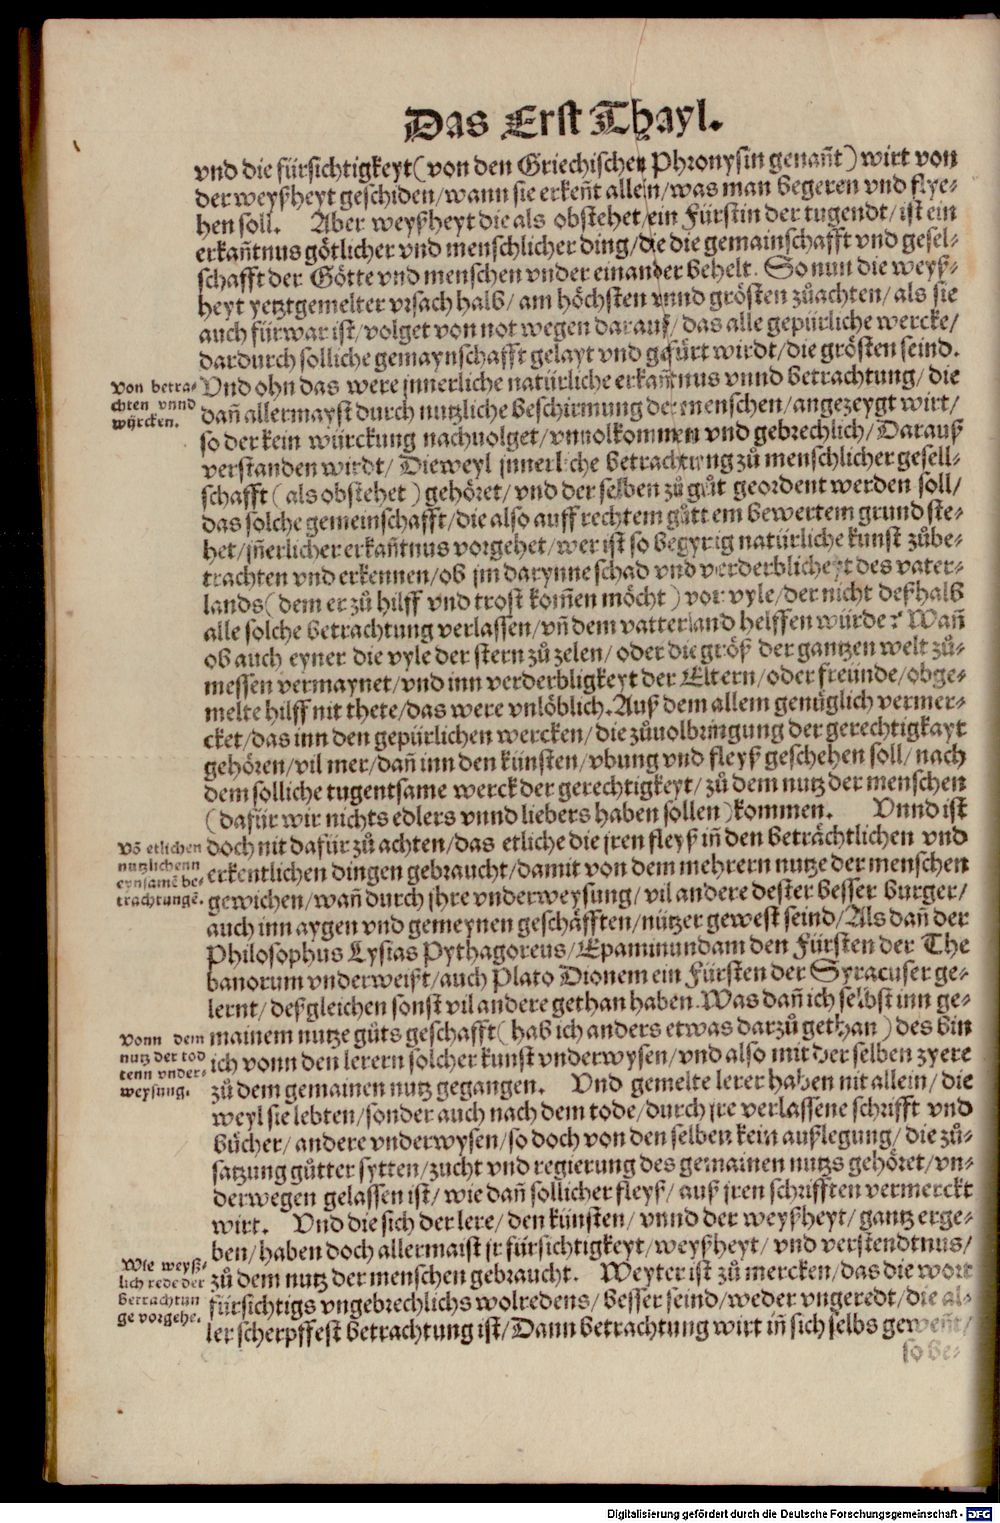 Das Erst Thayl.
vnd die fürsichtigkeyt (von den Griechischen Phronysin genañt) wirt von
der weyßheyt geschiden/wann sie erkeñt allein/was man begeren vnd flye-
hen soll. Aber weyßheyt die als obstehet/ein Fürstin der tugendt/ist ein
erkañtnus götlicher vnd menschlicher ding/die die gemainschafft vnd gesel-
schafft der Götte vnd menschen vnder einander behelt. So nun die weyß-
heyt yetztgemelter vrsach halb/ am höchsten vnnd grösten zůachten/ als sie
auch fürwar ist/volget von not wegen darauß/das alle gepürliche wercke/
dardurch solliche gemaynschafft gelayt vnd gefürt wirdt/die grösten seind.
Von betra-
chten vnnd
würcken.
Vnd ohn das were jnnerliche natürliche erkañtnus vnnd betrachtung/die
dañ allermayst durch nutzliche beschirmung der menschen/angezeygt wirt/
so der kein würckung nachuolget/vnuolkommen vnd gebrechlich/Darauß
verstanden wirdt/ Dieweyl jnnerliche betrachtung zů menschlicher gesell-
schafft (als obstehet) gehöret/vnd der selben zů gůt geordent werden soll/
das solche gemeinschafft/die also auff rechtem gůttem bewertem grund ste-
het/jñerlicher erkañtnus vorgehet/wer ist so begyrig natürliche kunst zůbe-
trachten vnd erkennen/ob jm darynne schad vnd verderblicheyt des vater-
lands (dem er zů hilff vnd trost kom̃en möcht) vor vyle/der nicht deßhalb
alle solche betrachtung verlassen/vñ dem vatterland helffen würde? Wañ
ob auch eyner die vyle der stern zů zelen/oder die größ der gantzen welt zů-
messen vermaynet/vnd inn verderbligkeyt der Eltern/oder freünde/obge-
melte hilff nit thete/das were vnlöblich. Auß dem allem genüglich vermer-
cket/das inn den gepürlichen wercken/die zůuolbringung der gerechtigkayt
gehören/vil mer/dañ inn den künsten/vbung vnd fleyß geschehen soll/nach
dem solliche tugentsame werck der gerechtigkeyt/zů dem nutz der menschen
(dafür wir nichts edlers vnnd liebers haben sollen) kommen. Vnnd ist
Võ etlichen
nutzlichenn
eynsamẽ be-
trachtungẽ.
doch nit dafür zů achten/das etliche die jren fleyß iñ den beträchtlichen vnd
erkentlichen dingen gebraucht/damit von dem mehrern nutze der menschen
gewichen/wañ durch jhre vnderweysung/vil andere dester besser burger/
auch inn aygen vnd gemeynen geschäfften/nützer gewest seind/Als dañ der
Philosophus Lysias Pythagoreus/Epaminundam den Fürsten der The
banorum vnderweißt/auch Plato Dionem ein Fürsten der Syracuser ge-
lernt/deßgleichen sonst vil andere gethan haben. Was dañ ich selbst inn ge-
Vonn dem
nutz der tod
tenn vnder-
weysung.
mainem nutze gůts geschafft (hab ich anders etwas darzů gethan) des bin
ich vonn den lerern solcher kunst vnderwysen/vnd also mit der selben zyere
zů dem gemainen nutz gegangen. Vnd gemelte lerer haben nit allein/die
weyl sie lebten/sonder auch nach dem tode/durch jre verlassene schrifft vnd
bücher/andere vnderwysen/so doch von den selben kein außlegung/die zů-
satzung gůtter sytten/zucht vnd regierung des gemainen nutzs gehöret/vn-
derwegen gelassen ist/wie dañ sollicher fleyß/auß jren schrifften vermerckt
wirt. Vnd die sich der lere/den künsten/vnnd der weyßheyt/gantz erge-
ben/haben doch allermaist jr fürsichtigkeyt/weyßheyt/vnd verstendtnus/
Wie weyß-
lich rede der
betrachtun
ge vorgehe.
zů dem nutz der menschen gebraucht. Weyter ist zů mercken/das die wort
fürsichtigs vngebrechlichs wolredens/besser seind/weder vngeredt/die al-
ler scherpffest betrachtung ist/Dann betrachtung wirt iñ sich selbs geweñt/
so be-
Digitalisierung gefördert durch die Deutsche Forschungsgemeinschaft - DFG